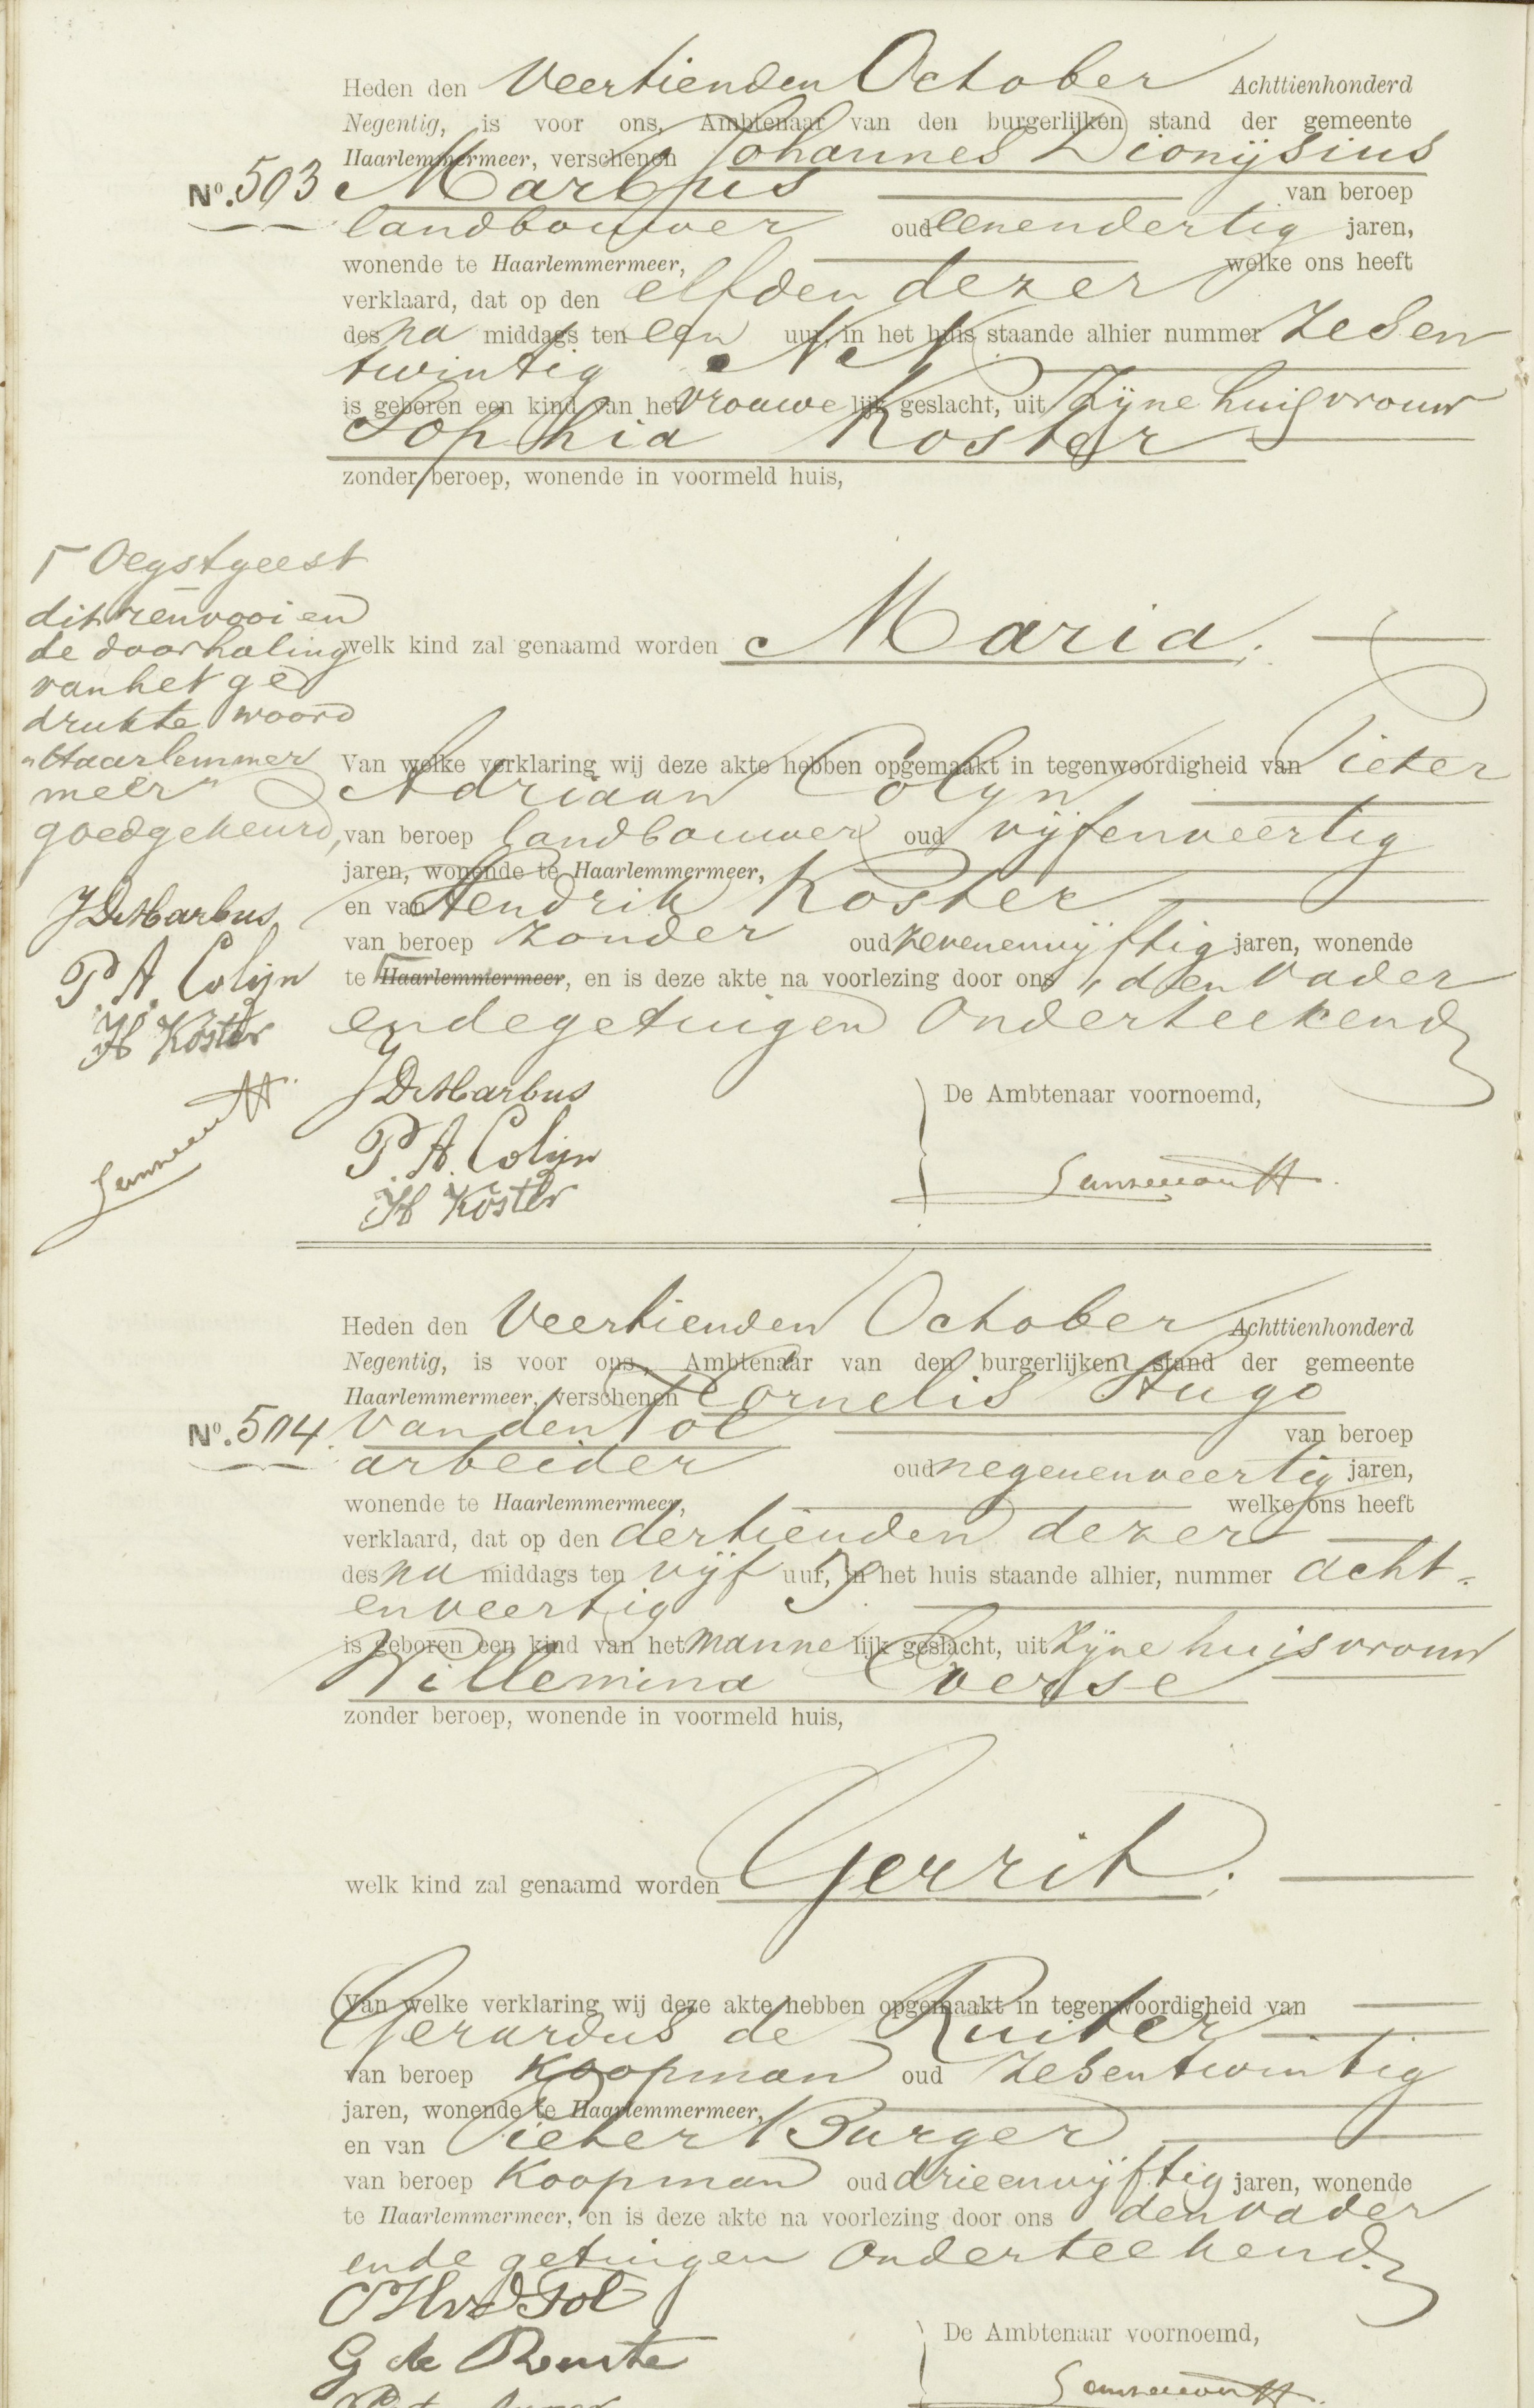 Heden den Veertienden October Achttienhonderd
Negentig, is voor ons, Ambtenaar van den burgerlijken stand der gemeente
Haarlemmermeer, verschenen Johannes Dionijsius
No. 503 Marbus van beroep
landbouwer oud eenendertig jaren,
wonende te Haarlemmermeer, welke ons heeft
verklaard, dat op den elfden dezer
des na middags ten een uur, in het huis staande alhier nummer zesen
twintig N N
is geboren een kind van het vrouwe lijk geslacht, uit zijne huisvrouw
Sophia Koster
zonder beroep, wonende in voormeld huis,
welk kind zal genaamd worden Maria;
Van welke verklaring wij deze akte hebben opgemaakt in tegenwoordigheid van Pieter
Adriaan Colijn
van beroep landbouwer oud vijfenveertig
jaren, wonende te Haarlemmermeer,
en van Hendrik Koster
van beroep zonder oud zevenenvijftig jaren, wonende
te Haarlemmermeer, en is deze akte na voorlezing door ons, den vader
en de getuigen onderteekend
Γ Oegstgeest
dit renvooi en
de doorhaling
van het ge
drukte woord
"Haarlemmer
meer"
goedgekeurd,
JDMarbus
P. A. Colijn
H Koster
JDMarbus
P. A. Colijn
H Koster
De Ambtenaar voornoemd,
Heden den Veertienden October Achttienhonderd
Negentig, is voor ons, Ambtenaar van den burgerlijken stand der gemeente
Haarlemmermeer, verschenen Cornelis Hugo
No. 504 van den Tol van beroep
arbeider oud negenenveertig jaren,
wonende te Haarlemmermeer, welke ons heeft
verklaard, dat op den dertienden dezer
des na middags ten vijf uur, in het huis staande alhier, nummer acht-
enveertig
is geboren een kind van het manne lijk geslacht, uit zijne huisvrouw
Willemina Overse
zonder beroep, wonende in voormeld huis,
welk kind zal genaamd worden Gerrit;
Van welke verklaring wij deze akte hebben opgemaakt in tegenwoordigheid van
Gerardus de Ruiter
van beroep koopman oud zesentwintig
jaren, wonende te Haarlemmermeer,
en van Pieter Burger
van beroep Koopman oud drieenvijftig jaren, wonende
te Haarlemmermeer, en is deze akte na voorlezing door ons den vader
en de getuigen onderteekend.
CHvdTol
G de Ruite
De Ambtenaar voornoemd,